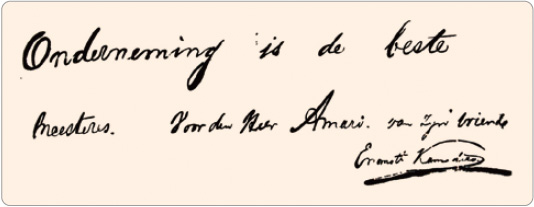 Onderneming is de beste
Meesteres. Voor den Heer Amari. van zijn vriend
Enomoto Kamadiro